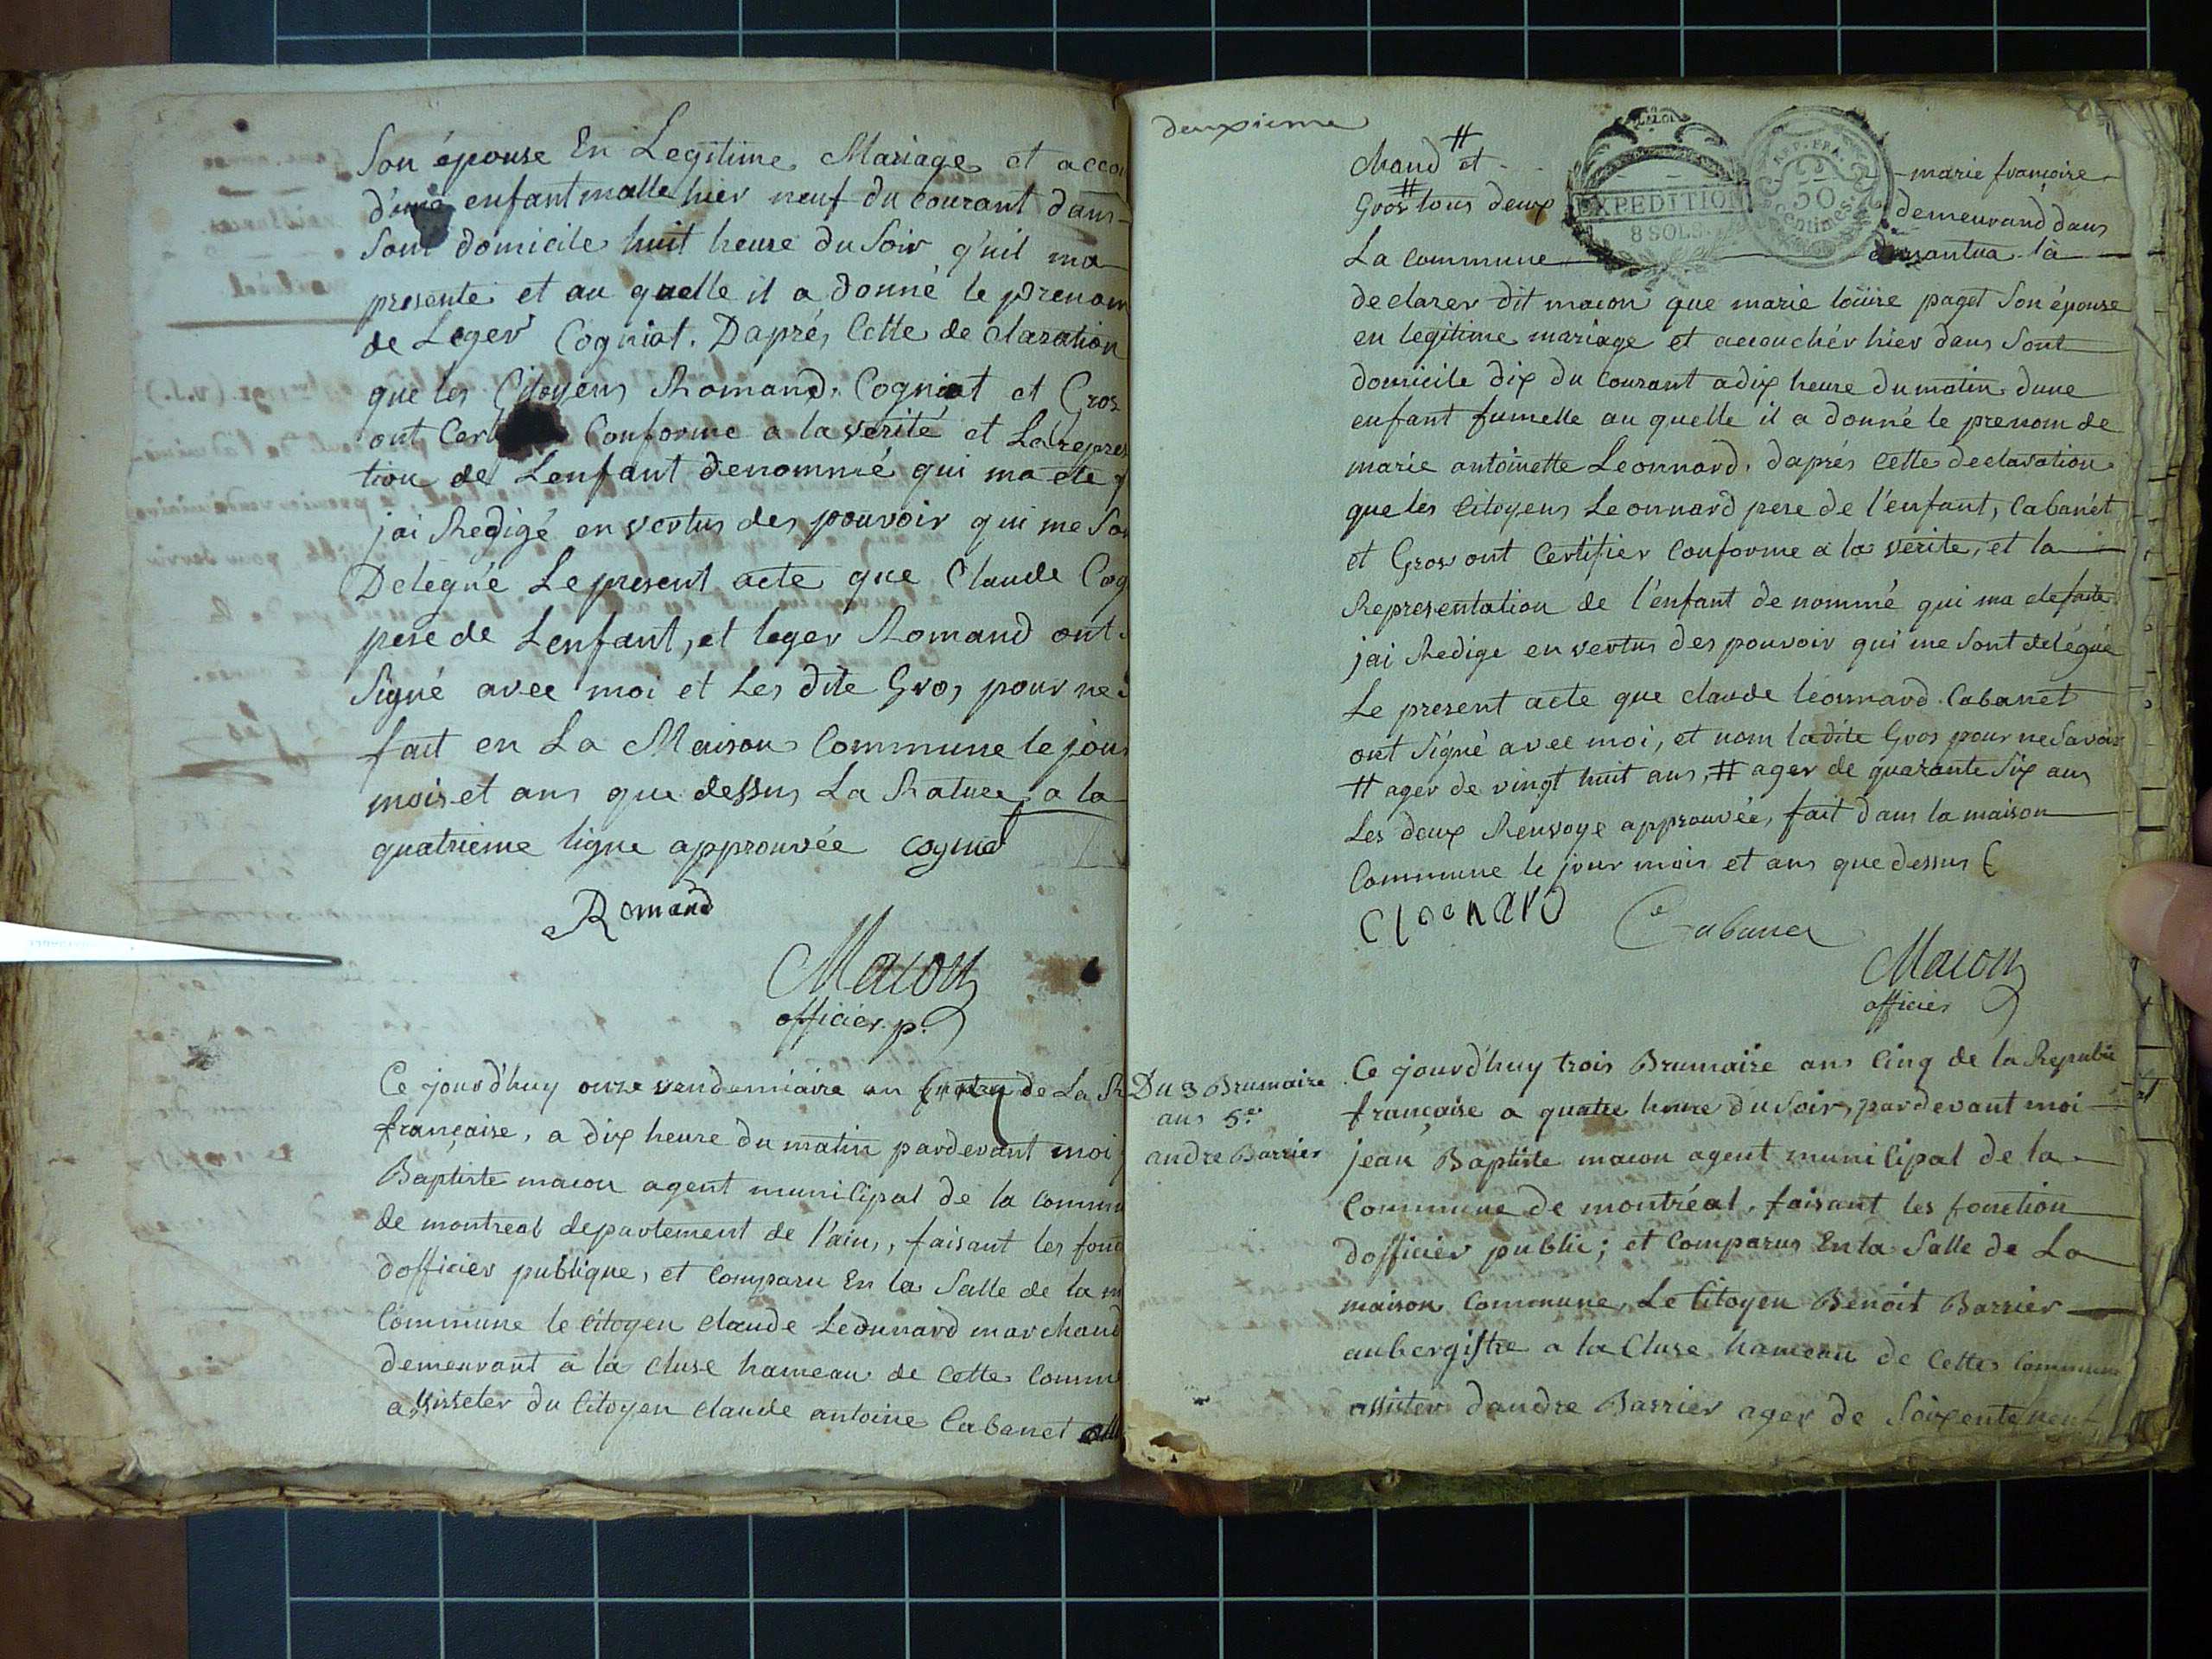 Son épouse En Legitime Mariage et acco
d'une enfant malle hier neuf du Courant dans
Sont domicile huit heure du Soir q'uil ma
presenté et au quelle il a donné le prenom
de Leger Cogniat. Daprés Cette de claration
que les Citoyens Romand, Cogniat et Gros
ont Cer Conforme a la verité et La repres
tion de Lenfant denommé qui ma ete
jai Redigé en vertus des pouvoir qui me Son
Delegué Le present acte que Claude Cog
pere de Lenfant, et leger Romand ont
Signé avec moi et Les dite Gros pour ne
fait en La Maison Commune le jour
mois et ans que dessus La Rature a la
quatrieme ligne approuvée Cogniat
Romand
Macon
officier p.
Ce jourd'huy onze vendemiaire an de La R
française, a dix heure du matin pardevant moi j
Baptiste macon agent municipal de la commu
de montreal departement de l'ain, faisant les fonc
dofficier publique, et Comparu En la Salle de la m
Commune le Citoyen Claude Leonnard marchand
demeurant a la Cluse hameau de Cette Commu
assisseter du Citoyen claude antoine Cabanet
deuxieme
chand # et marie françoise
Gros # tous deux demeurand dans
EXPEDITION
8 SOLS.
REP. FRA.
50
Centimes.
La Commune denantua là
declarer dit macon que marie loüise paget Son épouse
en legitime mariage et accouchér hier dans Sont
domicile dix du Courant a dix heure du matin dune
enfant fumelle au quelle il a donné le prenom de
marie antoinette Leonnard, daprés Cette declaration
que les Citoyens Leonnard pere de l'enfant, Cabanét
et Gros ont Certifier Conforme a la verite, et la
Representation de l'enfant denommé qui ma ete faite
jai Redige en vertus des pouvoir qui me Sont delégué
Le present acte que claude léonnard Cabanet
ont Signé avec moi, et nom ladite Gros pour ne Savoir
# ager de vingt huit ans, # ager de quarante Six ans
Les deux Renvoye approuvée, fait dans la maison
Commune le jour mois et ans que dessus
Cleonard
Cabanet
Macon
officier
Du 3 Brumaire
ans 5.er
andre Barrier
Ce jourd'huy trois Brumaire ans Cinq de la Republi
française a quatre heure du Soir, pardevant moi
jean Baptiste macon agent municipal de la
Commune de montréal, faisant les fonction
dofficier public; et Comparus En la Salle de La
maison Commune, Le Citoyen Benoit Barrier
aubergiste a la Cluse hameau de Cette Commune
assister dandre Barrier ager de Soixente neuf